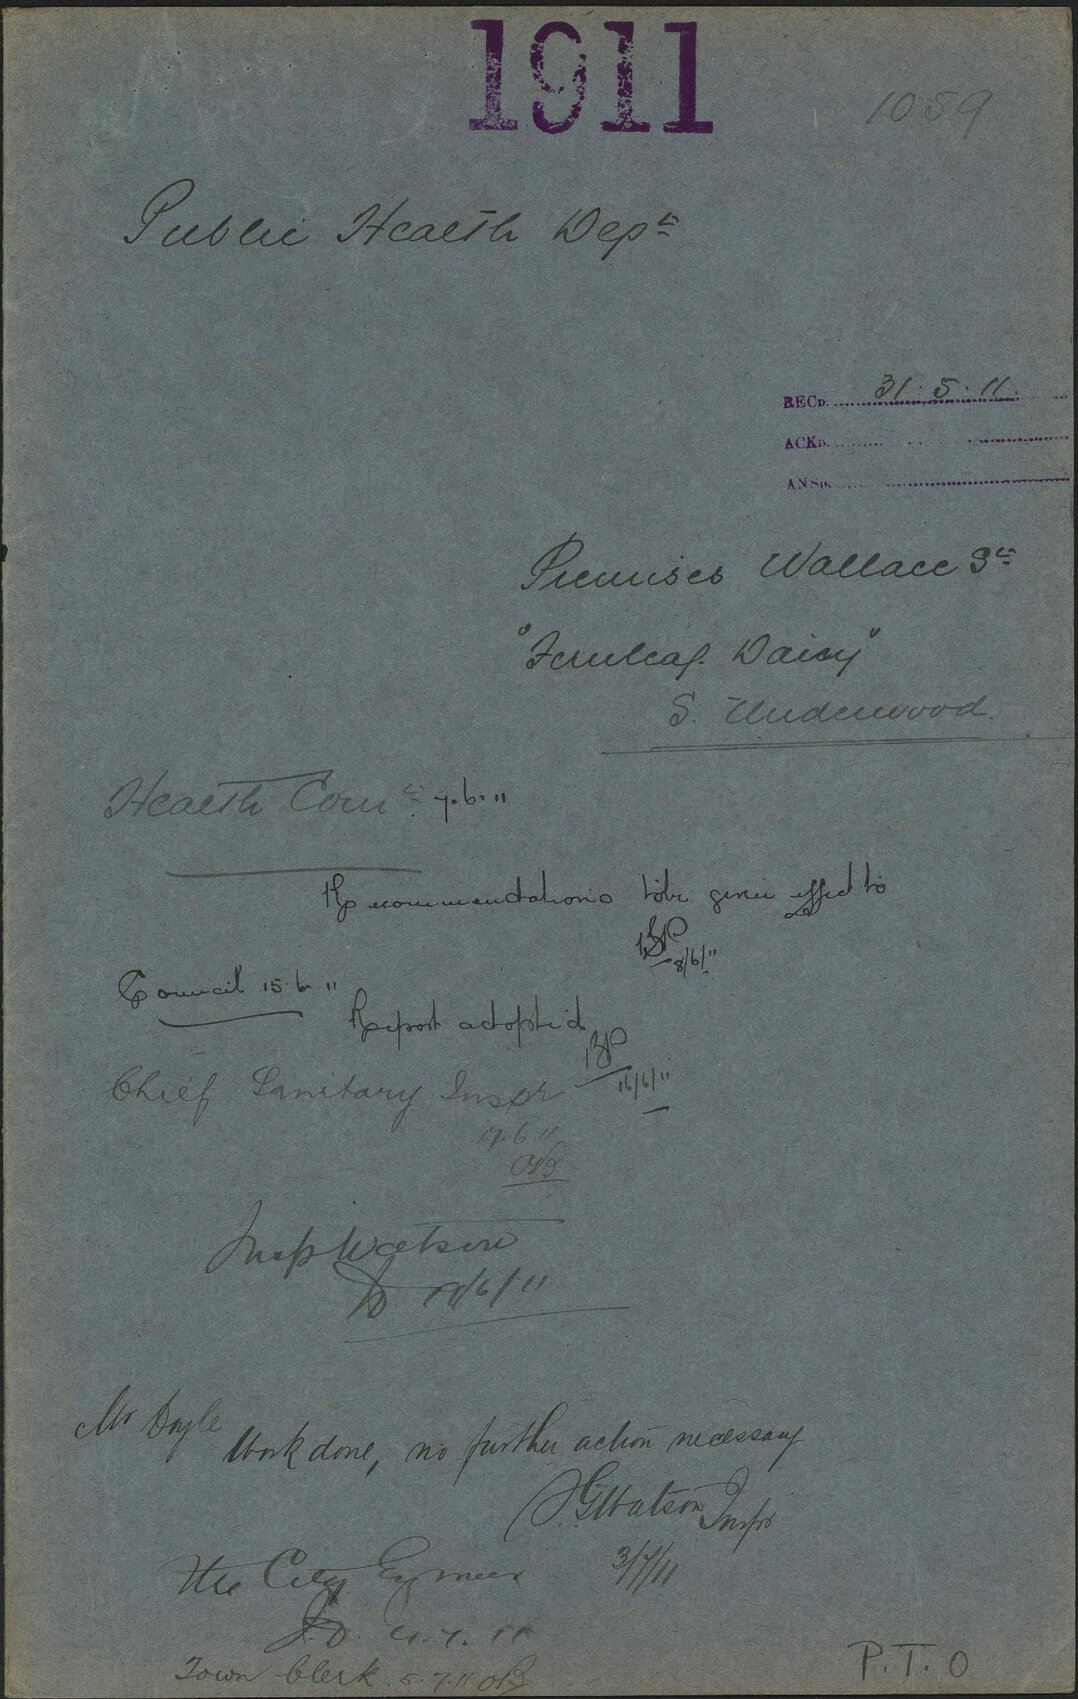 1911
1059
Public Health Dept
RECD. 31.5.11
ACKD.
ANSD.
Premises Wallace St
"Fernleaf Daisy"
S. Underwood
Health Comtt 7.6.11
Recommendations to be given effect to
8/6/11
Council 15.6.11
Report adopted
16/6/11
Chief Sanitary Inspr
Insp Watson
/6/11
Mr Doyle
Work done, no further action necessary
Watson Inspr
3/7/11
The City Engineer
4.7.11
Town Clerk 5.7.11
P.T.O